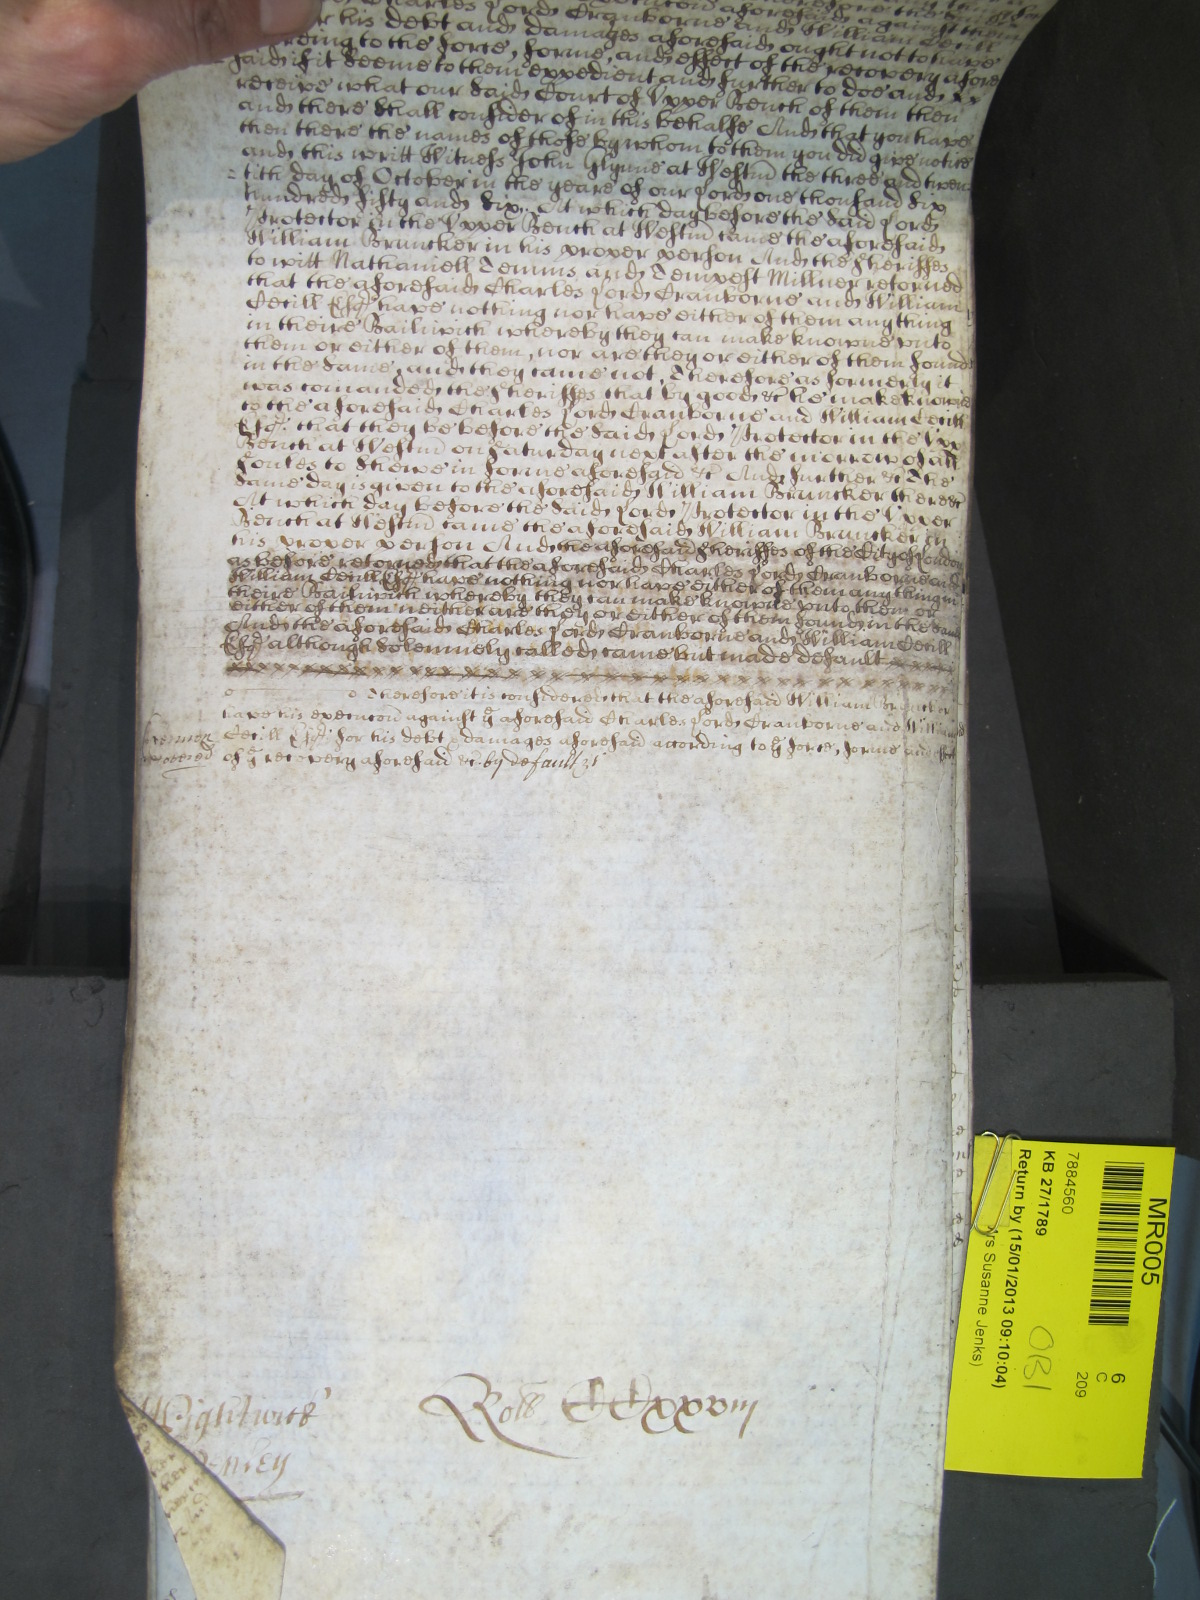 Charles Lord Cranborne and William Cecill
his debt and damages aforesaid ought not to have
according to the force, forme, and effect of the recovery afore
said if it seeme to them expedient and further to doe and
receive what our said Court of Upper Bench of them then
and there shall consider of in this behalfe And that you have
then there the names of those by whom to them you did give notice
and this writt Witness John Glynne at Westm the three and twen
tith day of October in the yeare of our Lord one thousand six
hundred fifty and six. At which day before the said Lord
Protector in the Upper Bench at Westm came the aforesaid
William Bruncker in his proper person And the Sheriffes
to witt Nathaniell Temms and Tempest Millner retorned
that the aforesaid Charles Lord Cranborne and William
Cecill Esqr have nothing nor have either of them any thing
in theire Bailiwick whereby they can make knowne unto
them or either of them, nor are they or either of them found
in the same, and they came not, Therefore as formerly it
was comanded the Sheriffes that by good &c he make knowne
to the aforesaid Charles Lord Cranborne and William Cecill
Esqr: that they be before the said Lord Protector in the Upp
Bench at Westm on Saturday next after the morrow of all
soules to shewe in forme aforesaid &c And further &c The
same day is given to the aforesaid William Bruncker there &c
At which day before the said Lord Protector in the Upper
Bench at Westm came the aforesaid William Bruncker in
his proper person And the aforesaid Sheriffes of the City of London
as before retorned that the aforesaid Charles Lord Cranborne and
William Cecill Esqr have nothing nor have either of them any thing in
theire Bailiwick whereby they can make knowne unto them or
either of them neither are they or either of them found in the same
And the aforesaid Charles Lord Cranborne and William Cecill
Esqr although solemnely called came but made default
Therefore it is considered that the aforesaid William Bruncker
have his execucon against ye aforesaid Charles Lord Cranborne and William
Cecill Esqr: for his debt & damages aforesaid according to ye force, forme and effect
of ye recovery aforesaid &c. by default &c
Wightwick
Rolls CCxxviij
MR005
6
C
209
7884560
KB 27/1789
Return by (15/01/2013 09:10:04)
Susanne Jenks)
OB1